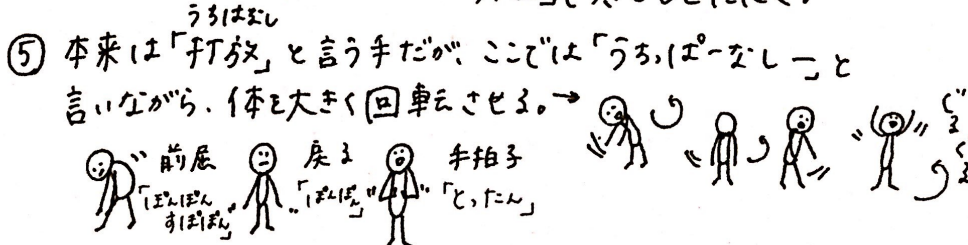 うちはなし
⑤ 本来は「打放」と言う手だが、ここでは「うちっぱーなしー」と
言いながら、体を大きく回転させる。→
ぐるぐる
前屈
「ぽんぽん
すぽぽん」
戻る
「ぽんぽん」
手拍子
「とったん」